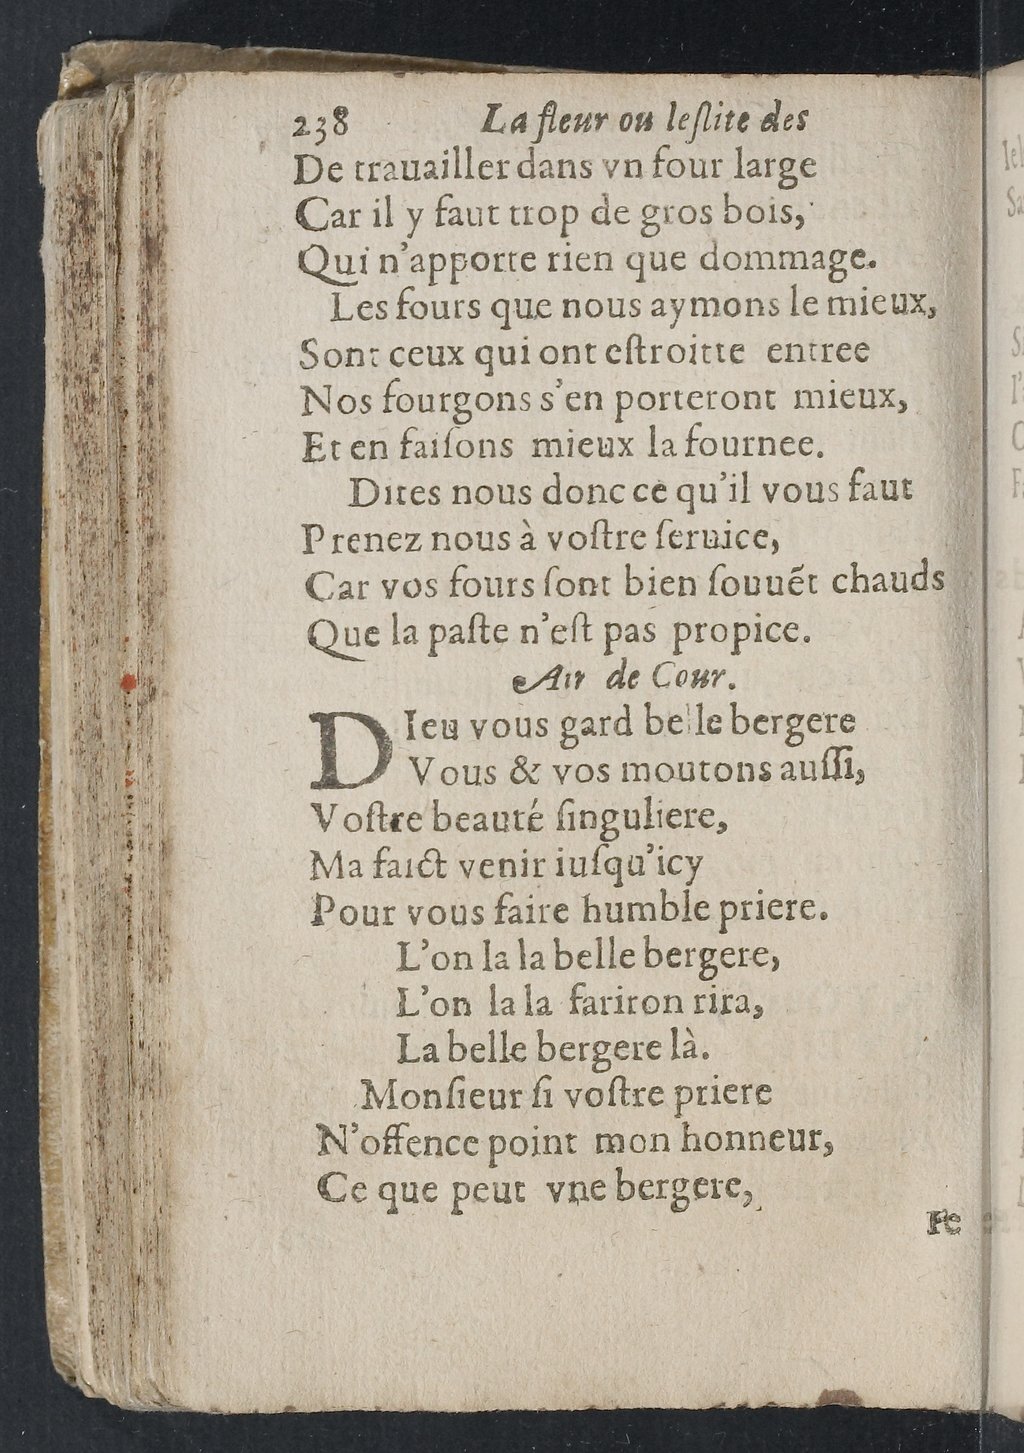 238 La fleur ou leſlite des
De trauailler dans vn four large
Car il y faut trop de gros bois,
Qui n'apporte rien que dommage.
Les fours que nous aymons le mieux,
Sont ceux qui ont eſtroitte entree
Nos fourgons s'en porteront mieux,
Et en faiſons mieux la fournee.
Dites nous donc ce qu'il vous faut
Prenez nous à voſtre ſeruice,
Car vos fours ſont bien ſouuẽt chauds
Que la paſte n'eſt pas propice.
Air de Cour.
DIeu vous gard belle bergere
Vous & vos moutons auſſi,
Voſtre beauté ſinguliere,
Ma faict venir iuſqu'icy
Pour vous faire humble priere.
L'on la la belle bergere,
L'on la la fariron rira,
La belle bergere là.
Monſieur ſi voſtre priere
N'offence point mon honneur,
Ce que peut vne bergere,